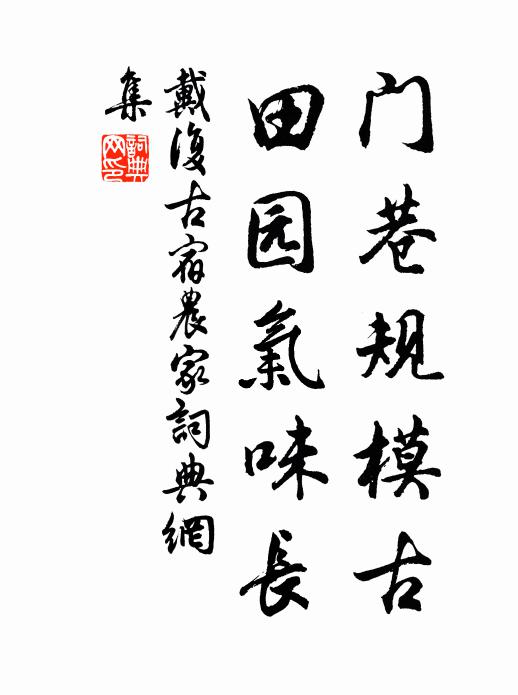 门巷规模古
田园氣味長
戴復古宿農家詞典網
集
詞典
网印